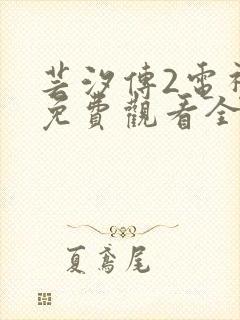 芸汐傳2雷神
免費觀看全
夏鳶尾